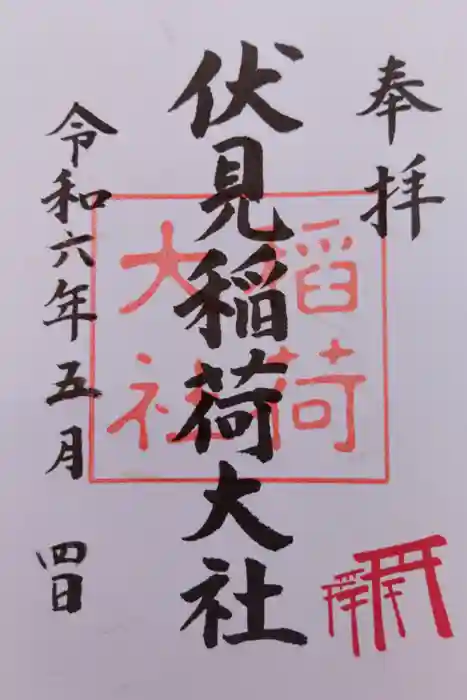 奉拝
伏見稲荷大社
稲荷
大社
令和六年五月四日